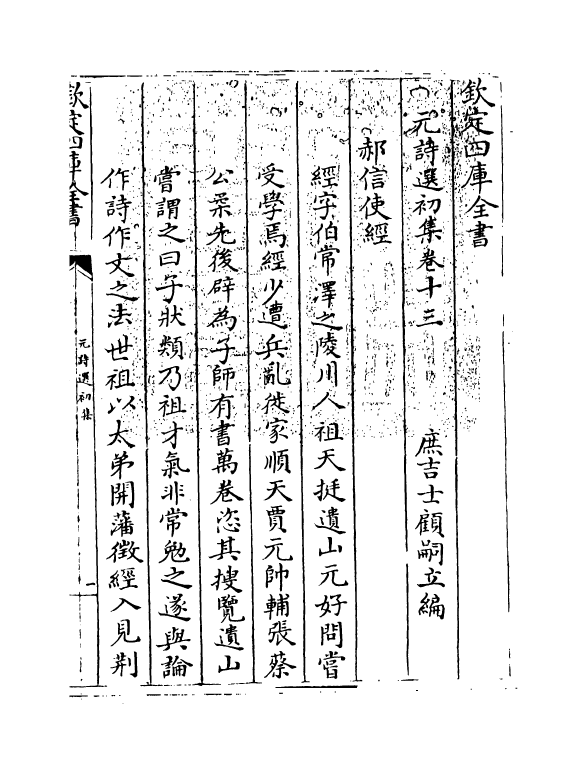 欽定四庫全書
元詩選初集卷十三
庶吉士顧嗣立編
郝信使經
經字伯常澤之陵川人祖天挺遺山元好問嘗
受學焉經少遭兵亂徙家順天賈元帥輔張蔡
公柔先後辟為子師有書萬卷恣其搜覽遺山
嘗謂之曰子狀類乃祖才氣非常勉之遂與論
作詩作文之法世祖以太弟開藩徵經入見荆
欽定四庫全書
元詩選初集
一